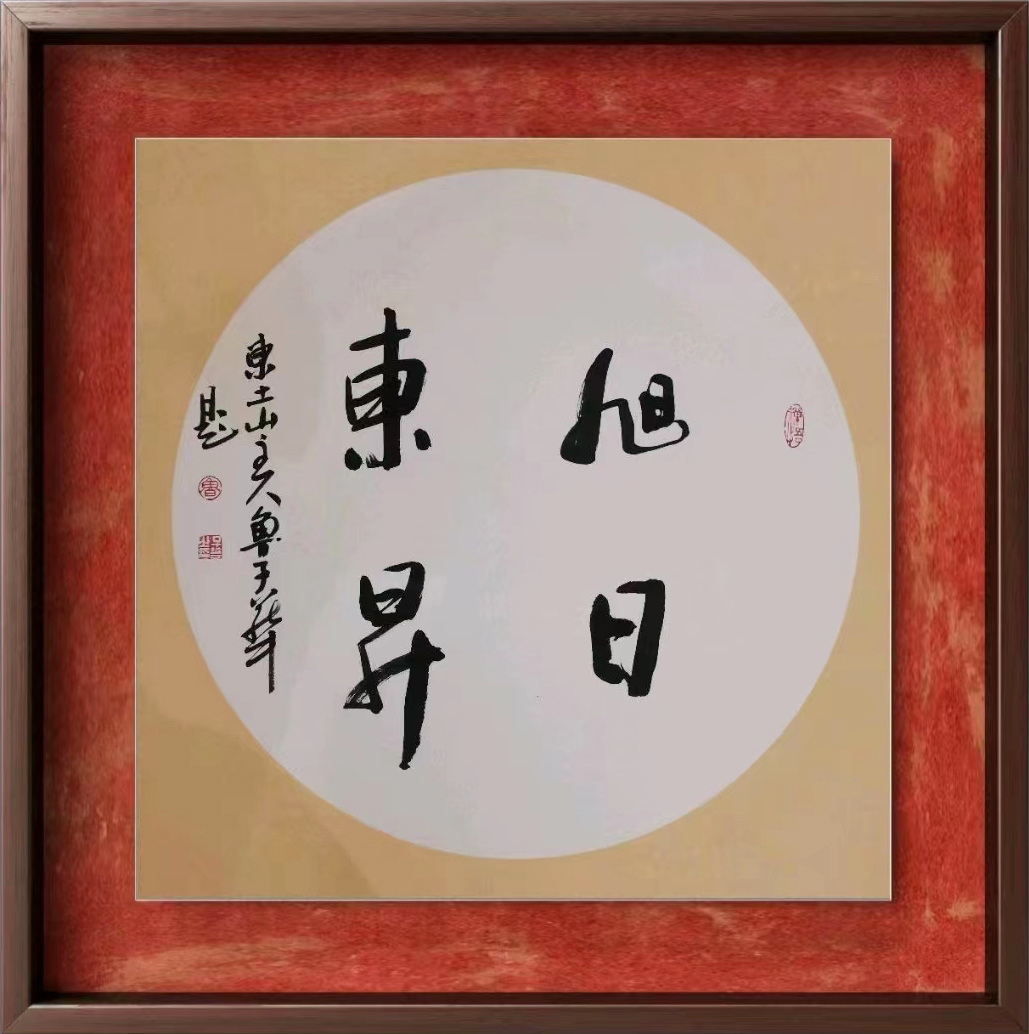 旭日
東昇
東土山主人魯子華
題